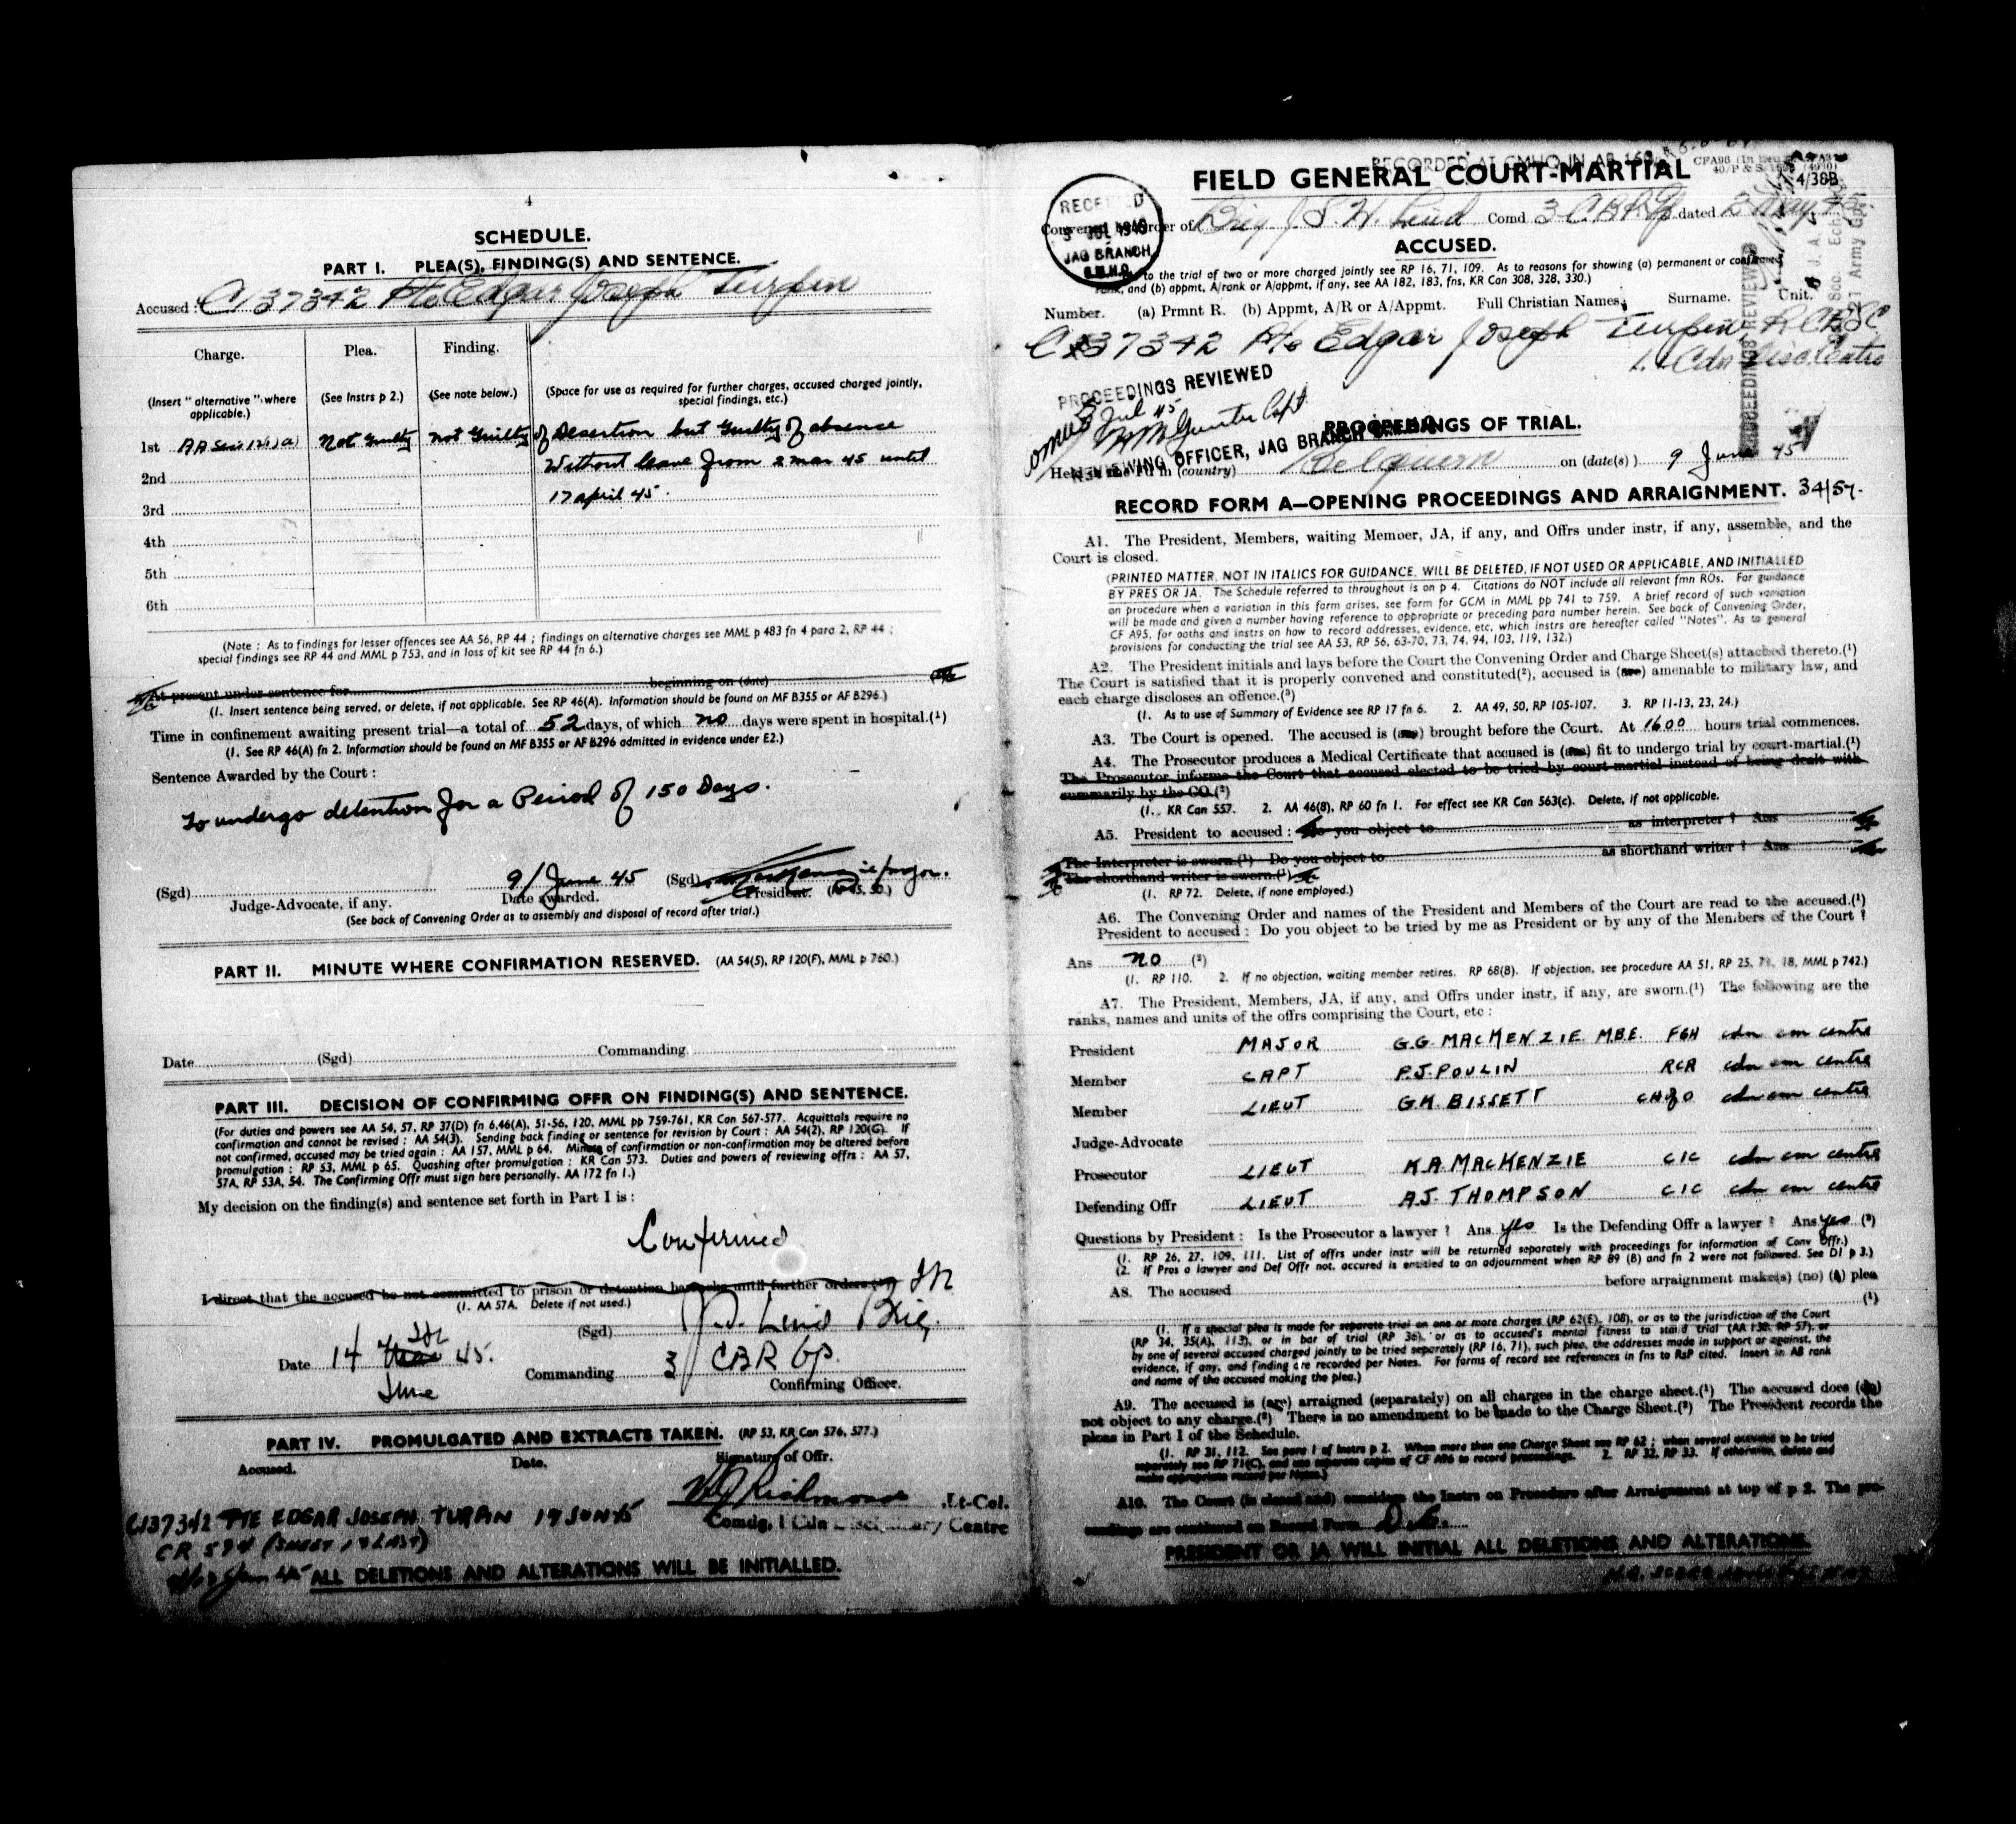 4
SCHEDULE.
PART I. PLEA(S), FINDING(S) AND SENTENCE.
Accused : C/37342 Pte Edgar Joseph Turpin
Charge. Plea. Finding.
(Insert " alternative " where applicable.) (See Instrs p 2.) (See note below.) (Space for use as required for further charges, accused charged jointly, special findings, etc.)
1st AA Sec 12(1)(a) Not Guilty not Guilty of Desertion but Guilty of absence
2nd Without leave from 2 mar 45 until
3rd 17 april 45.
4th
5th
6th
(Note : As to findings for lesser offences see AA 56, RP 44 ; findings on alternative charges see MML p 483 fn 4 para 2, RP 44 ;
special findings see RP 44 and MML p 753, and in loss of kit see RP 44 fn 6.)
At present under sentence for beginning on (date)
(1. Insert sentence being served, or delete, if not applicable. See RP 46(A). Information should be found on MF B355 or AF B296.)
Time in confinement awaiting present trial—a total of 52 days, of which no days were spent in hospital.(1)
(1. See RP 46(A) fn 2. Information should be found on MF B355 or AF B296 admitted in evidence under E2.)
Sentence Awarded by the Court :
To undergo detention for a Period of 150 Days.
(Sgd) 9/June 45 (Sgd) major.
Judge-Advocate, if any. Date awarded. President. (RP 45, 50.)
(See back of Convening Order as to assembly and disposal of record after trial.)
PART II. MINUTE WHERE CONFIRMATION RESERVED. (AA 54(5), RP 120(F), MML p 760.)
Date (Sgd) Commanding
PART III. DECISION OF CONFIRMING OFFR ON FINDING(S) AND SENTENCE.
(For duties and powers see AA 54, 57, RP 37(D) fn 6,46(A), 51-56, 120, MML pp 759-761, KR Can 567-577. Acquittals require no
confirmation and cannot be revised : AA 54(3). Sending back finding or sentence for revision by Court : AA 54(2), RP 120(G). If
not confirmed, accused may be tried again : AA 157, MML p 64. Minute of confirmation or non-confirmation may be altered before
promulgation : RP 53, MML p 65. Quashing after promulgation : KR Can 573. Duties and powers of reviewing offrs : AA 57,
57A, RP 53A, 54. The Confirming Offr must sign here personally. AA 172 fn 1.)
My decision on the finding(s) and sentence set forth in Part I is :
Confirmed
I direct that the accused be not committed to prison or detention barracks until further orders.
(1. AA 57A. Delete if not used.)
(Sgd) Brig.
Date 14 June 45.
Commanding 3 CBR Gp.
Confirming Officer.
PART IV. PROMULGATED AND EXTRACTS TAKEN. (RP 53, KR Can 576, 577.)
Accused. Date. Signature of Offr.
Richmond ,Lt-Col.
C/37342 PTE EDGAR JOSEPH TURPIN 19 JUN 45 Comdg, 1 Cdn Disciplinary Centre
CR 594 (SHEET 1 & LAST)
ALL DELETIONS AND ALTERATIONS WILL BE INITIALLED.
RECORDED AT CMHQ IN AB 160
FIELD GENERAL COURT-MARTIAL
4/38B
RECEIVED
JUL
JAG BRANCH
C.M.H.Q.
Convened by Order of Brig Comd 3 CBR Gp dated
ACCUSED.
to the trial of two or more charged jointly see RP 16, 71, 109. As to reasons for showing (a) permanent or confirmed
rank, and (b) appmt, A/rank or A/appmt, if any, see AA 182, 183, fns, KR Can 308, 328, 330.)
Number. (a) Prmnt R. (b) Appmt, A/R or A/Appmt. Full Christian Names. Surname. Unit.
C/37342 Pte Edgar Joseph Turpin
1 Cdn Disc. Centre
PROCEEDINGS REVIEWED
Jul 45
Capt
REVIEWING OFFICER, JAG BRANCH
PROCEEDINGS REVIEWED
PROCEEDINGS OF TRIAL.
Held in the Fd in (country) on (date(s)) 9 June 45
RECORD FORM A—OPENING PROCEEDINGS AND ARRAIGNMENT. 34/57.
A1. The President, Members, waiting Member, JA, if any, and Offrs under instr, if any, assemble, and the
Court is closed.
(PRINTED MATTER, NOT IN ITALICS FOR GUIDANCE, WILL BE DELETED, IF NOT USED OR APPLICABLE, AND INITIALLED
BY PRES OR JA. The Schedule referred to throughout is on p 4. Citations do NOT include all relevant fmn ROs. For guidance
on procedure when a variation in this form arises, see form for GCM in MML pp 741 to 759. A brief record of such variation
will be made and given a number having reference to appropriate or preceding para number herein. See back of Convening Order,
CF A95, for oaths and instrs on how to record addresses, evidence, etc, which instrs are hereafter called "Notes". As to general
provisions for conducting the trial see AA 53, RP 56, 63-70, 73, 74, 94, 103, 119, 132.)
A2. The President initials and lays before the Court the Convening Order and Charge Sheet(s) attached thereto.(1)
The Court is satisfied that it is properly convened and constituted(2), accused is (are) amenable to military law, and
each charge discloses an offence.(3)
(1. As to use of Summary of Evidence see RP 17 fn 6. 2. AA 49, 50, RP 105-107. 3. RP 11-13, 23, 24.)
A3. The Court is opened. The accused is (are) brought before the Court. At 1600 hours trial commences.
A4. The Prosecutor produces a Medical Certificate that accused is (are) fit to undergo trial by court-martial.(1)
The Prosecutor informs the Court that accused elected to be tried by court-martial instead of being dealt with
summarily by the CO.(2)
(1. KR Can 557. 2. AA 46(8), RP 60 fn 1. For effect see KR Can 563(c). Delete, if not applicable.
A5. President to accused : Do you object to as interpreter ? Ans
The Interpreter is sworn.(1) Do you object to as shorthand writer ? Ans
The shorthand writer is sworn.(1)
(1. RP 72. Delete, if none employed.)
A6. The Convening Order and names of the President and Members of the Court are read to the accused.(1)
President to accused : Do you object to be tried by me as President or by any of the Members of the Court ?
Ans no (2)
(1. RP 110. 2. If no objection, waiting member retires. RP 68(B). If objection, see procedure AA 51, RP 25, 71, 18, MML p 742.)
A7. The President, Members, JA, if any, and Offrs under instr, if any, are sworn.(1) The following are the
ranks, names and units of the offrs comprising the Court, etc :
President MAJOR G.G. MACKENZIE MBE. FGH cdn em centre
Member CAPT P.J. POULIN RCA cdn em centre
Member LIEUT G.H. BISSETT CH of O cdn em centre
Judge-Advocate
Prosecutor LIEUT K.A. MACKENZIE CIC cdn em centre
Defending Offr LIEUT A.J. THOMPSON CIC cdn em centre
Questions by President : Is the Prosecutor a lawyer ? Ans yes Is the Defending Offr a lawyer ? Ans yes (2)
(1. RP 26, 27, 109, 111. List of offrs under instr will be returned separately with proceedings for information of Conv Offr.)
(2. If Pros a lawyer and Def Offr not, accured is entitled to an adjournment when RP 89 (B) and fn 2 were not followed. See D1 p 3.)
A8. The accused before arraignment make(s) (no) (a) plea
(1)
(1. If a special plea is made for separate trial on one or more charges (RP 62(E), 108), or as to the jurisdiction of the Court
(RP 34, 35(A), 113), or in bar of trial (RP 36), or as to accused's mental fitness to stand trial (AA 130, RP 57), or
by one of several accused charged jointly to be tried separately (RP 16, 71), such plea, the addresses made in support or against, the
evidence, if any, and finding are recorded per Notes. For forms of record see references in fns to RsP cited. Insert in A8 rank
and name of the accused making the plea.)
A9. The accused is (are) arraigned (separately) on all charges in the charge sheet.(1) The accused does (do)
not object to any charge.(2) There is no amendment to be made to the Charge Sheet.(2) The President records the
pleas in Part I of the Schedule.
(1. RP 31, 112. See para 1 of Instrs p 2. When more than one Charge Sheet see RP 62 ; when several accused to be tried
separately see RP 71(C), and use separate copies of CF A96 to record proceedings. 2. RP 32, RP 33. If otherwise, delete and
make appropriate record per Notes.)
A10. The Court (is closed and) considers the Instrs on Procedure after Arraignment at top of p 2. The pro-
ceedings are continued on Record Form
PRESIDENT OR JA WILL INITIAL ALL DELETIONS AND ALTERATIONS.